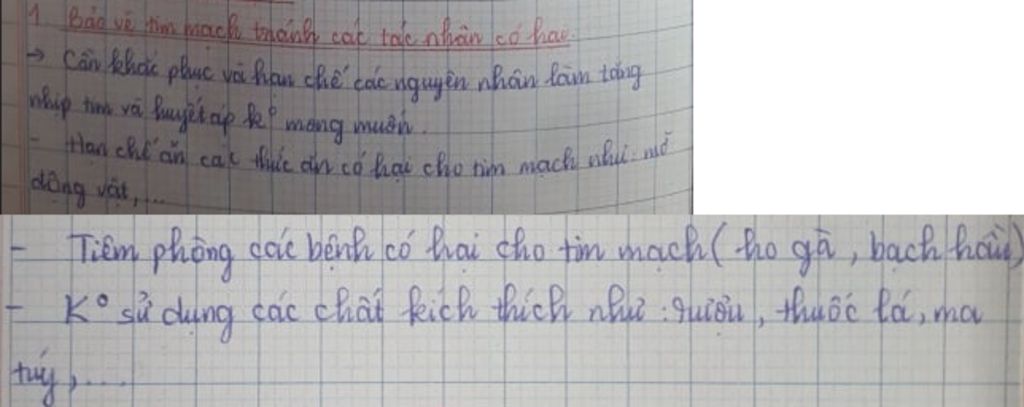 1. Bảo vệ tim mạch tránh các tác nhân có hại.
→ Cần khắc phục và hạn chế các nguyên nhân làm tăng
nhịp tim và huyết áp k° mong muốn.
- Hạn chế ăn các thức ăn có hại cho tim mạch như: mỡ
động vật,...
- Tiêm phòng các bệnh có hại cho tim mạch (ho gà, bạch hầu)
- K° sử dụng các chất kích thích như: rượu, thuốc lá, ma
túy,....